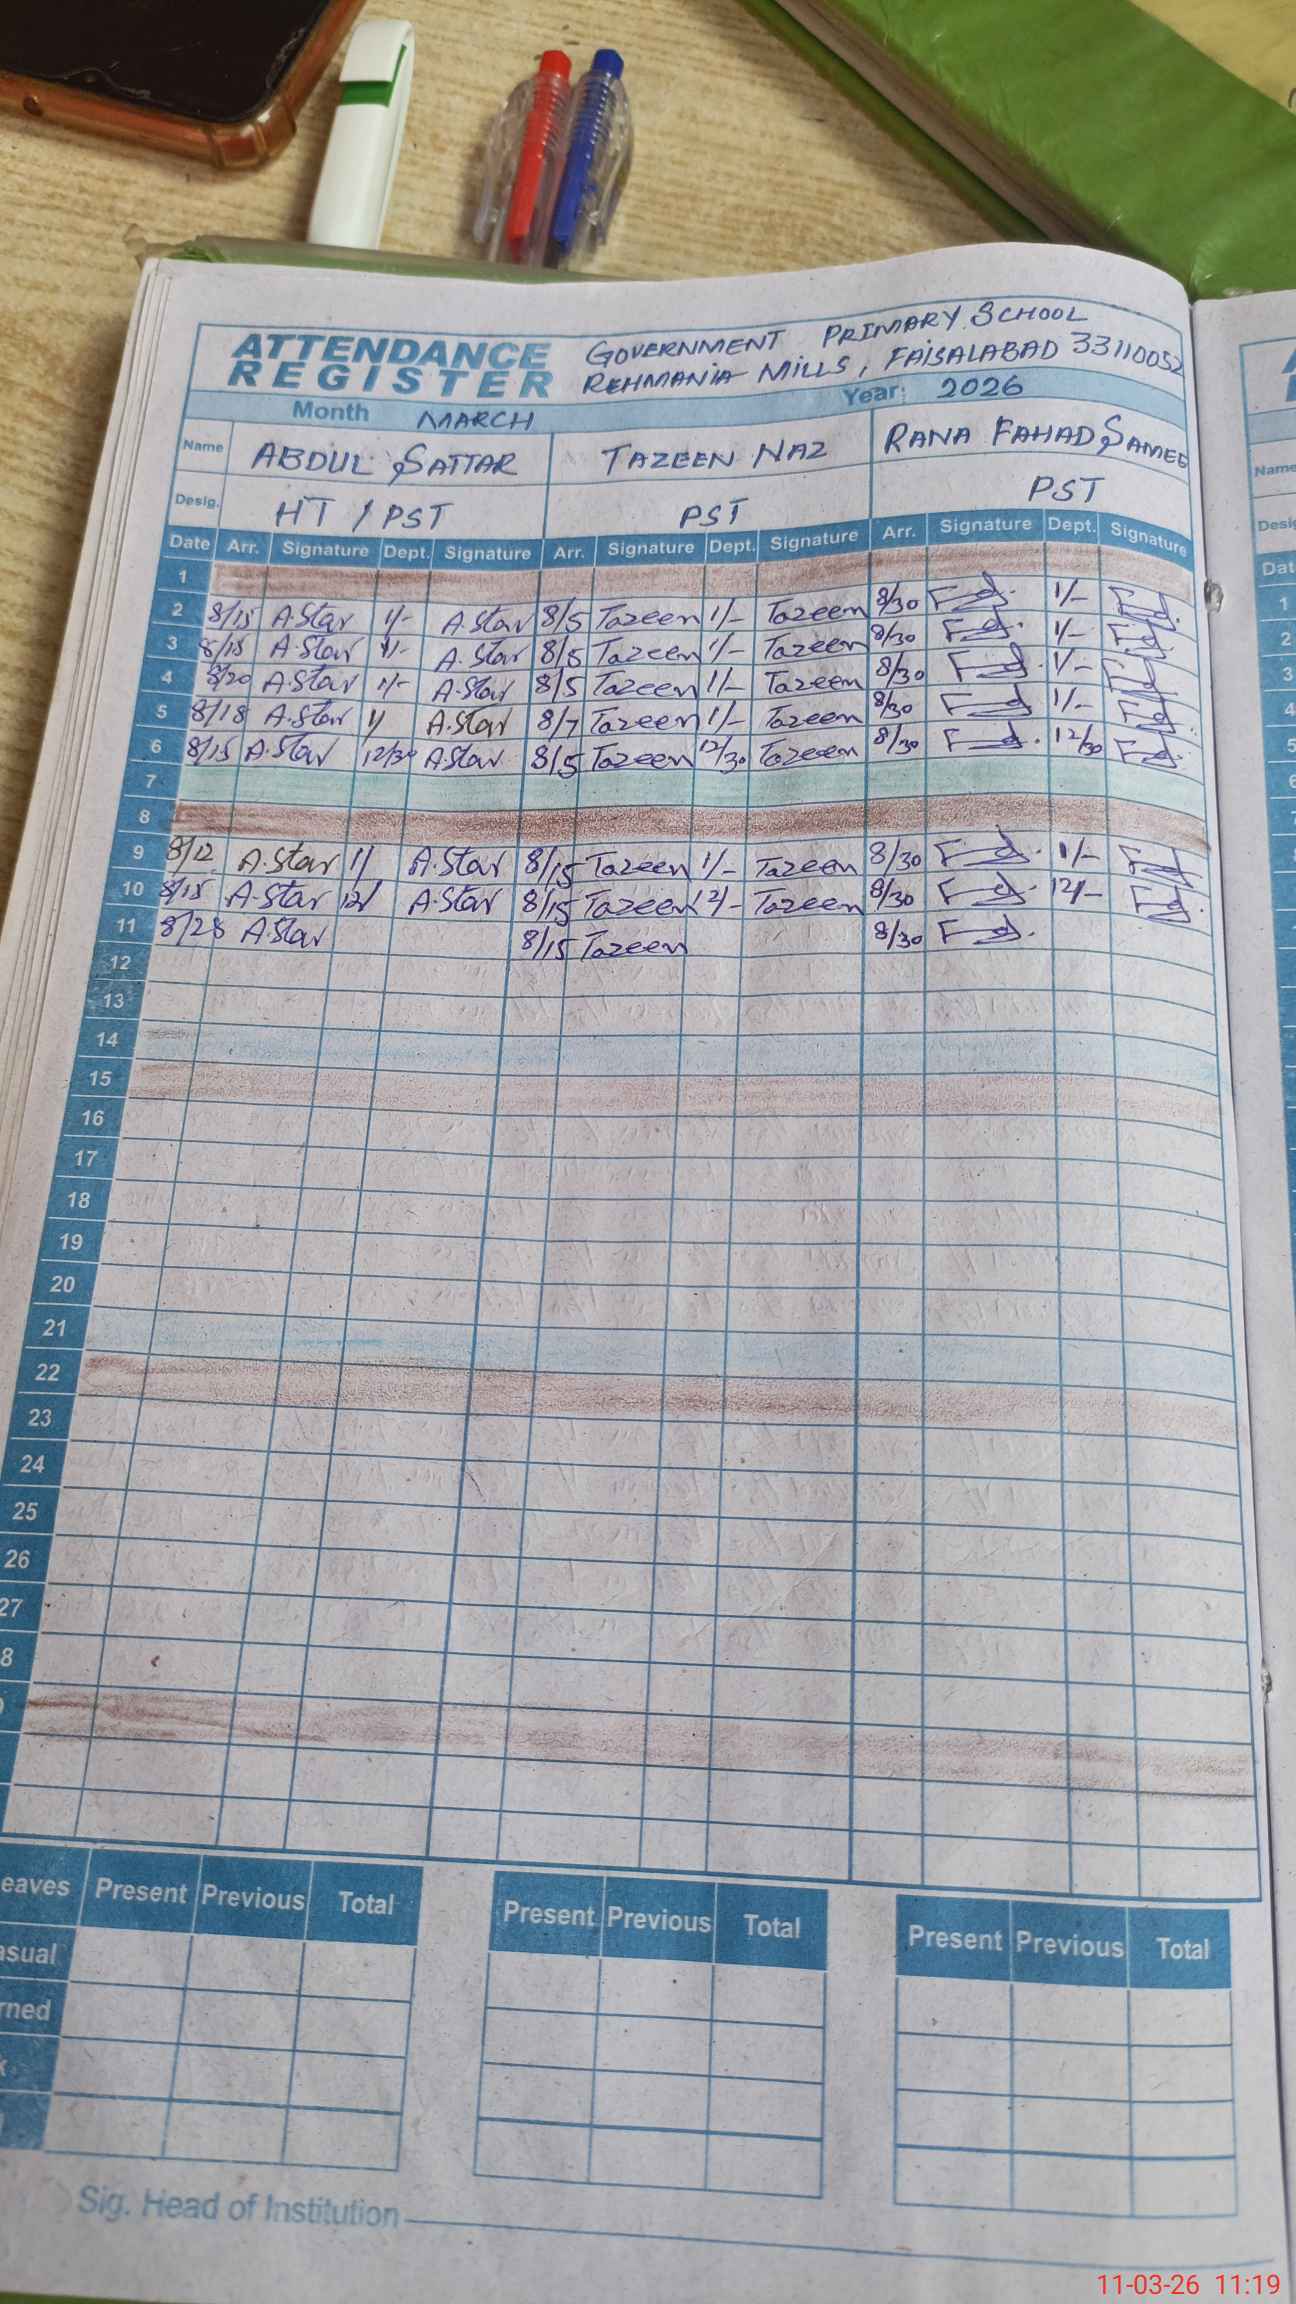 ATTENDANCE REGISTER
GOVERNMENT PRIMARY SCHOOL
REHMANIA MILLS, FAISALABAD 33110052
Month MARCH Year: 2026
Name ABDUL SATTAR TAZEEN NAZ RANA FAHAD SAMEE
Desig. HT / PST PST PST
Date Arr. Signature Dept. Signature Arr. Signature Dept. Signature Arr. Signature Dept. Signature
1
2 8/15 A.Star 1/- A.Star 8/5 Tazeen 1/- Tazeen 8/30 1/-
3 8/15 A.Star 1/- A.Star 8/5 Tazeen 1/- Tazeen 8/30 1/-
4 8/20 A.Star 1/- A.Star 8/5 Tazeen 1/- Tazeen 8/30 1/-
5 8/18 A.Star 1/ A.Star 8/7 Tazeen 1/- Tazeen 8/30 1/-
6 8/15 A.Star 12/30 A.Star 8/5 Tazeen 12/30 Tazeen 8/30 12/30
7
8
9 8/12 A.Star 1/ A.Star 8/15 Tazeen 1/- Tazeen 8/30 1/-
10 8/15 A.Star 12/ A.Star 8/15 Tazeen 12/- Tazeen 8/30 12/-
11 8/28 A.Star 8/15 Tazeen 8/30
12
13
14
15
16
17
18
19
20
21
22
23
24
25
26
27
8
eaves Present Previous Total Present Previous Total Present Previous Total
asual
rned
Sig. Head of Institution
11-03-26 11:19